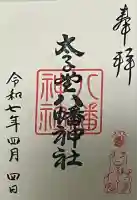 奉拝
太子堂八幡神社
八幡神社
令和七年四月四日